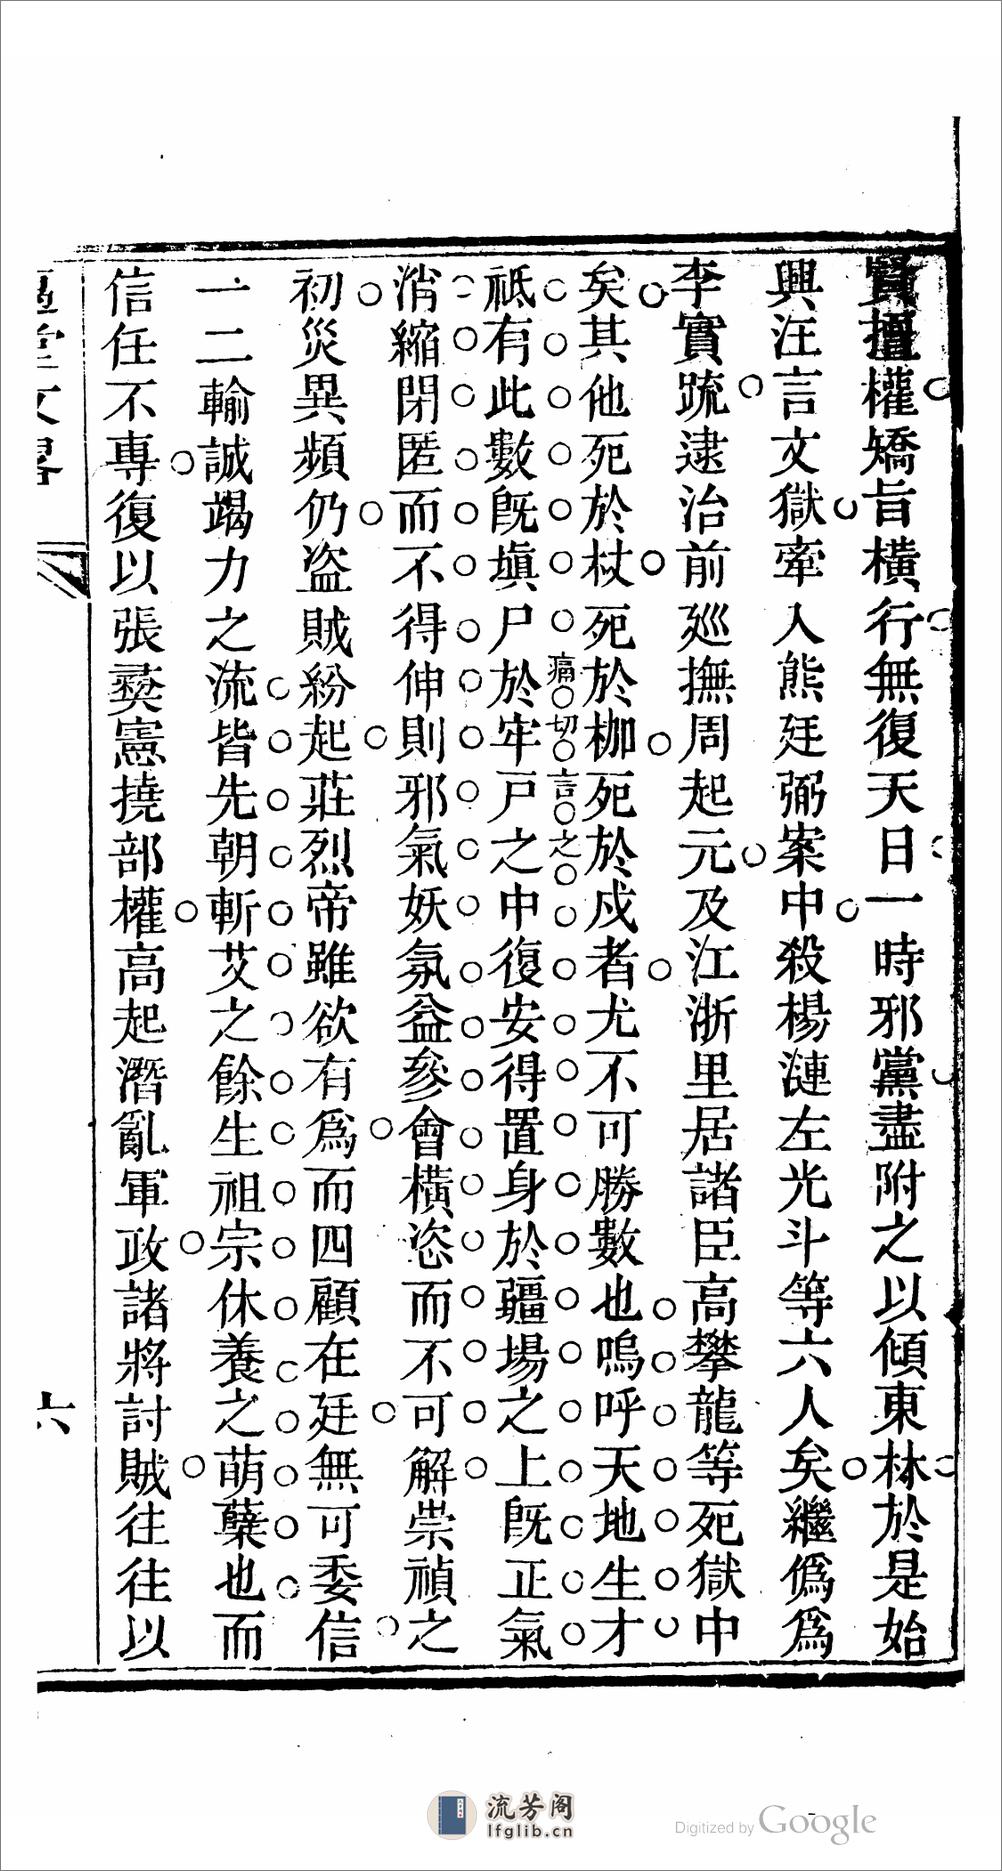 賢擅權矯旨橫行無復天日一時邪黨盡附之以傾東林於是始
興汪言文獄牽入熊廷弼案中殺楊漣左光斗等六人矣繼僞爲
李實疏逮治前巡撫周起元及江浙里居諸臣高攀龍等死獄中
矣其他死於杖死於枷死於戍者尤不可勝數也嗚呼天地生才
痛切言之
祇有此數旣塡尸於牢戶之中復安得置身於疆場之上旣正氣
消縮閉匿而不得伸則邪氣妖氛益參會橫恣而不可解崇禎之
初災異頻仍盜賊紛起莊烈帝雖欲有爲而四顧在廷無可委信
一二輸誠竭力之流皆先朝斬艾之餘生祖宗休養之萌蘖也而
信任不專復以張彝憲撓部權高起潛亂軍政諸將討賊往往以
堂文畧
六
流芳阁
lfglib.cn
Digitized by Google